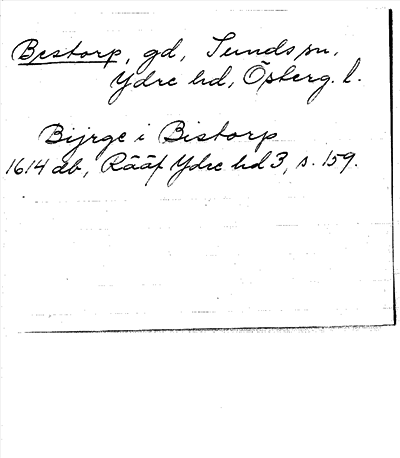 Bestorp, gd, Sunds sn.
Ydre hd, Österg. l.
Bijrge i Bistorp
1614 db, Rääf Ydre hd 3, s. 159.